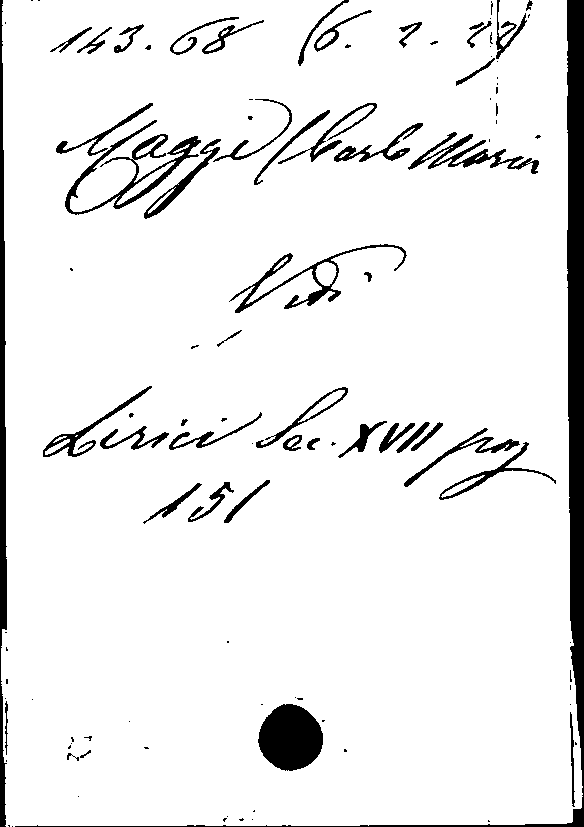 143.68 (6. 2. 22)
Maggi (Carlo Maria
Vedi
Lirici Sec. XVII pag
151